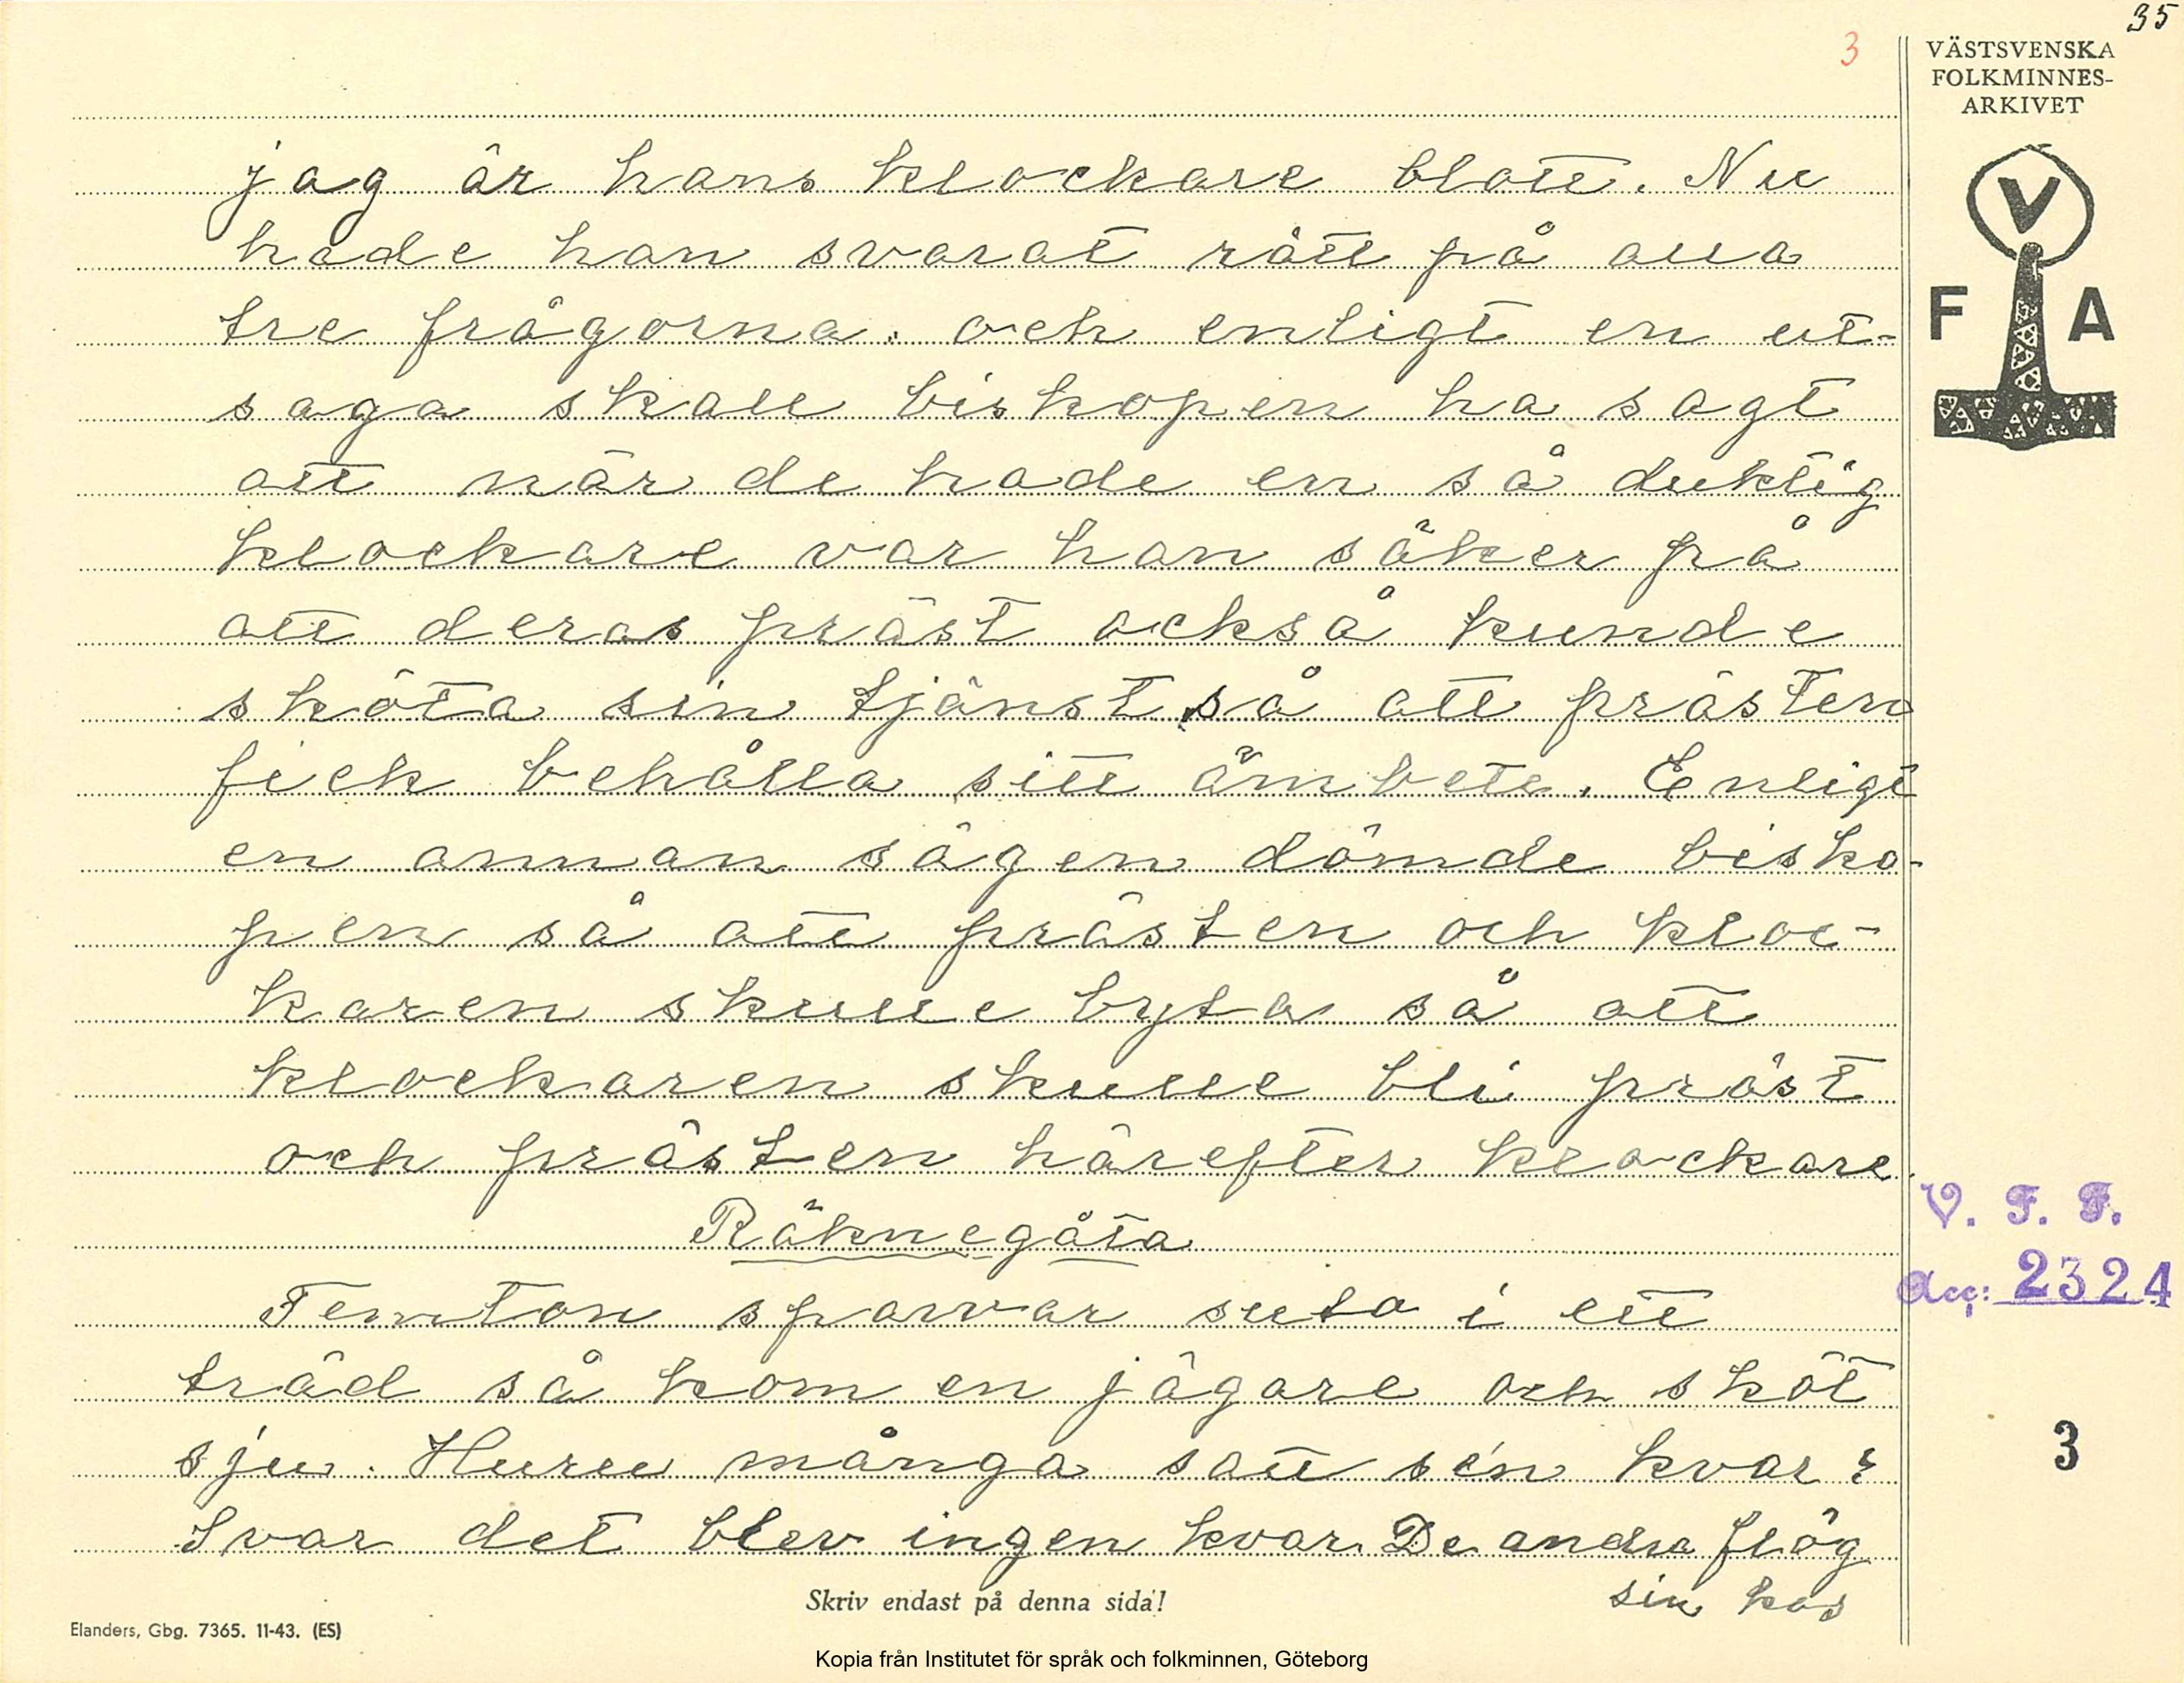 35
3
VÄSTSVENSKA
FOLKMINNES-
ARKIVET
V
F A
jag är hans klockare blott. Nu
hade han svarat rätt på alla
tre frågorna. och enligt en ut-
saga skall biskopen ha sagt
att när de hade en så duktig
klockare var han säker på
att deras präst också kunde
sköta sin tjänst, så att prästen
fick behålla sitt ämbete. Enligt
en annan sägen dömde bisko-
pen så att prästen och kloc-
karen skulle byta så att
klockaren skulle bli präst
och prästen härefter klockare.
Räknegåta
Femton sparvar suto i ett
träd så kom en jägare och sköt
sju. Huru många satt sén kvar?
Svar det blev ingen kvar. De andra flög
sin kos
V. F. F.
Acc: 2324
3
Skriv endast på denna sida!
Elanders, Gbg. 7365. 11-43. (ES)
Kopia från Institutet för språk och folkminnen, Göteborg